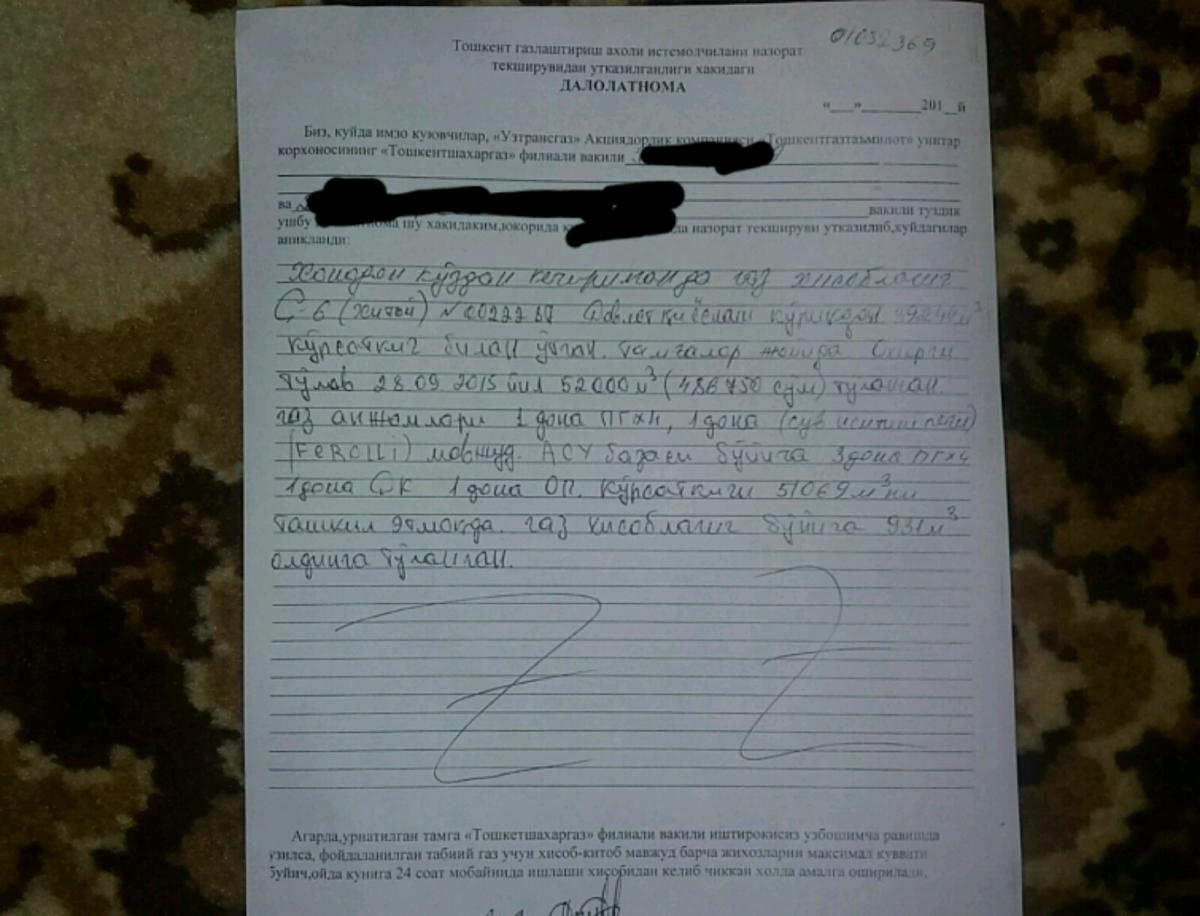 01032369
Тошкент газлаштириш ахоли истемолчилани назорат
текширувидан утказилганлиги хакидаги
ДАЛОЛАТНОМА
«___»________201__й
Биз, куйда имзо куювчилар, «Узтрансгаз» Акциядорлик компанияси «Тошкентгазтаъминот» унитар
корхоносининг «Тошкентшахаргаз» филиали вакили
ва вакили туздик
ушбу шу хакидаким,юкорида назорат текшируви утказилиб,куйдагилар
аникланди:
Хонадон кўздан кечирилганда газ хисоблагич
G-6 (Хитой) N Давлат қиёслаш кўрикдан м³
кўрсаткич билан ўтган. тамгалар жойида. Охирги
тўлов 28.09 2015 йил 52000 м³ (486750 сўм) тўлашган.
газ анжомлари 1 дона ПГх4, 1 дона (сув иситиш печи)
(FeROLLi) мавжуд. АСУ базаси бўйича 3 дона ПГх4
1 дона 1 дона ОП. Кўрсаткичи 51069 м³ ни
ташкил этмокда. газ хисоблагич бўйича 931 м³
олдинга тўлашган.
Агарда,урнатилган тамга «Тошкетшахаргаз» филиали вакили иштирокисиз узбошимча равишда
узилса, фойдаланилган табиий газ учун хисоб-китоб мавжуд барча жихозларни максимал куввати
буйич,ойда кунига 24 соат мобайнида ишлаши хисобидан келиб чиккан холда амалга оширилади,